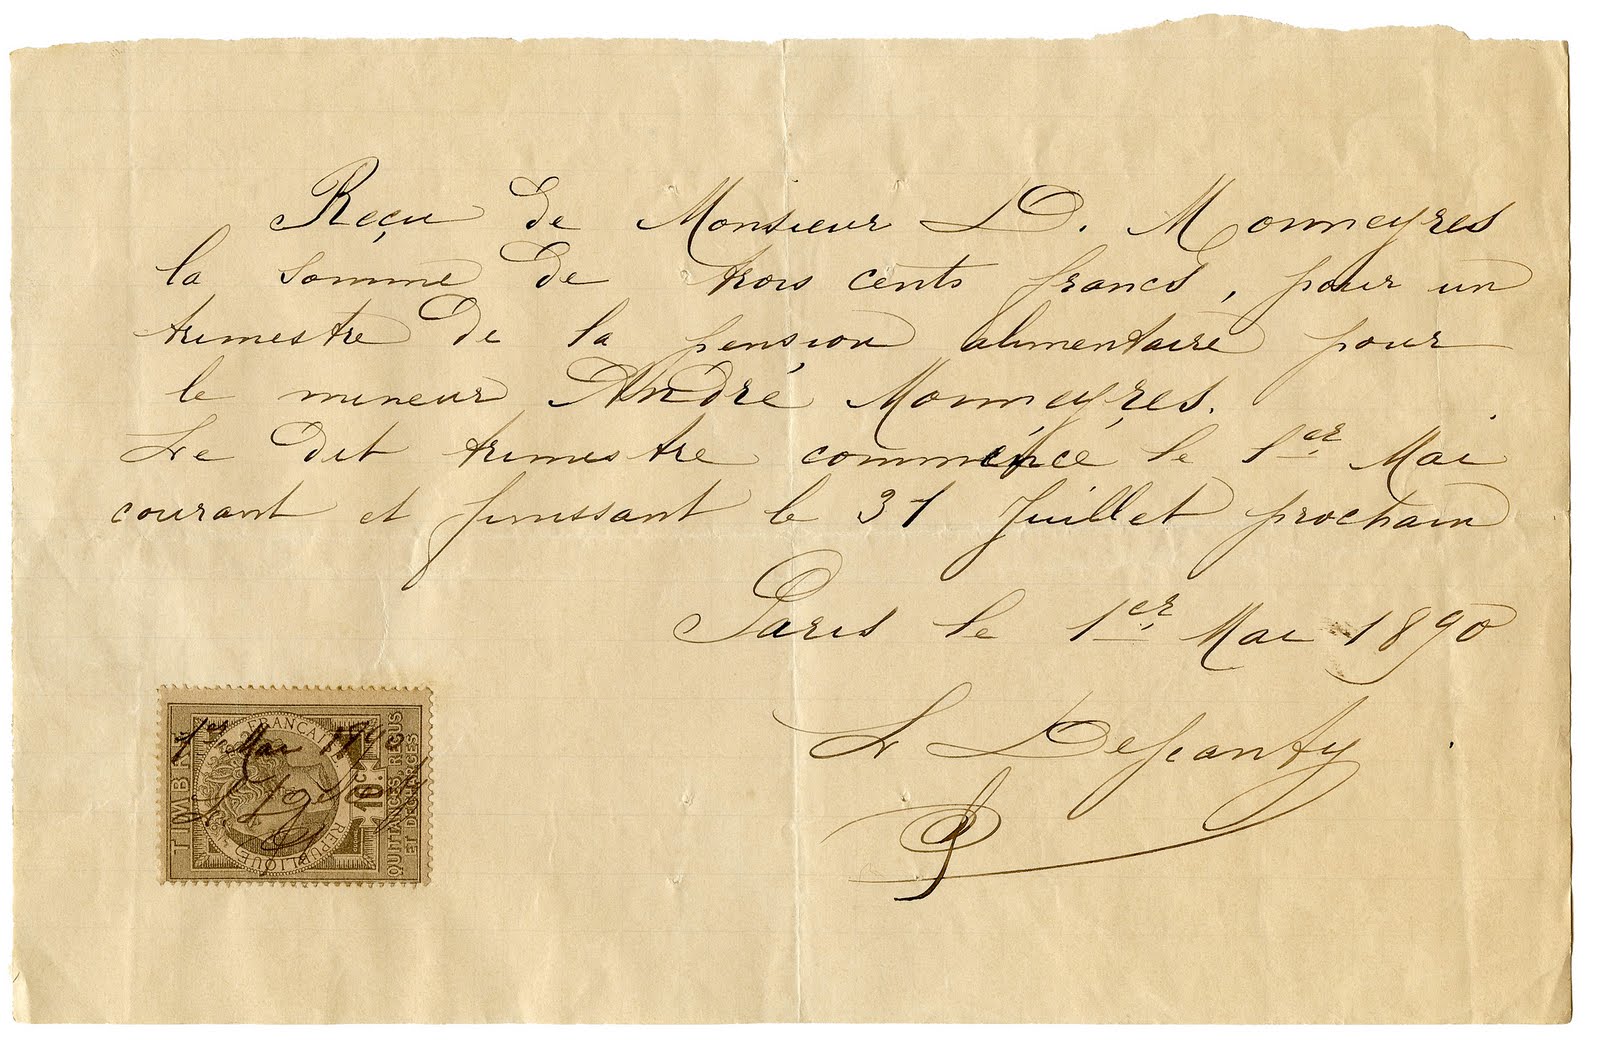 Reçu de Monsieur D. Monneyres
la somme de trois cents francs, pour un
trimestre de la pension alimentaire pour
le mineur André Monneyres.
Le dit trimestre commencé le 1er Mai
courant et finissant le 31 Juillet prochain
Paris le 1er Mai 1890
L
1er Mai 1890
TIMBRE
RÉPUBLIQUE FRANÇAISE
10c.
QUITTANCES, REÇUS
ET DÉCHARGES